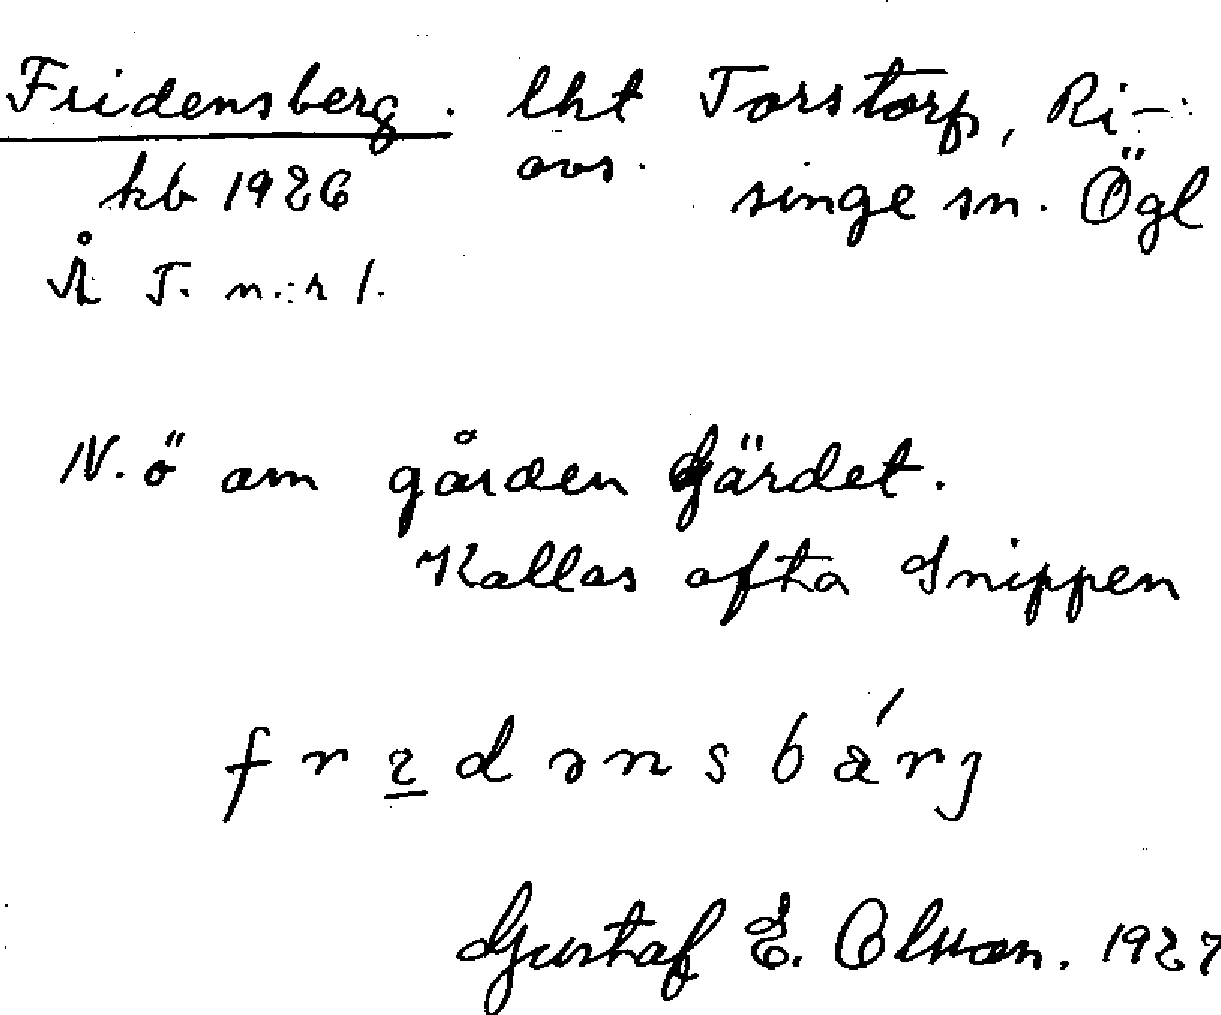 Fridensberg. lht Torstorp, Ri-
kb 1926 avs. singe sn. Ögl
Å T. n:r 1.
N.ö om gården Gärdet.
Kallas ofta Snippen
frɩdənsbä́rj
Gustaf E. Olsson. 1927